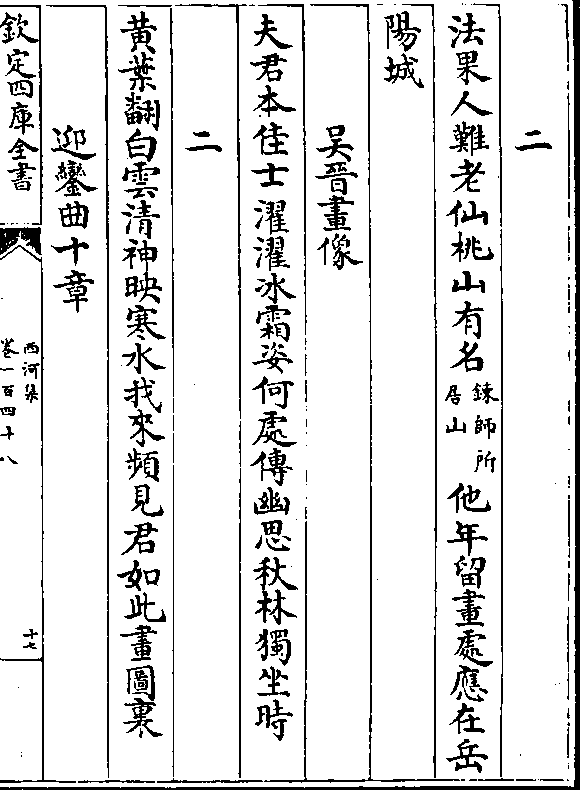 二
法果人難老仙桃山有名錬師所居山他年留畫處應在岳
陽城
吴晉畫像
夫君本佳士濯濯冰霜姿何處傳幽思秋林獨坐時
二
黄葉翻白雲清神映寒水我來頻見君如此畫圖裏
迎鑾曲十章
欽定四庫全書
西河集
卷一百四十八
十七